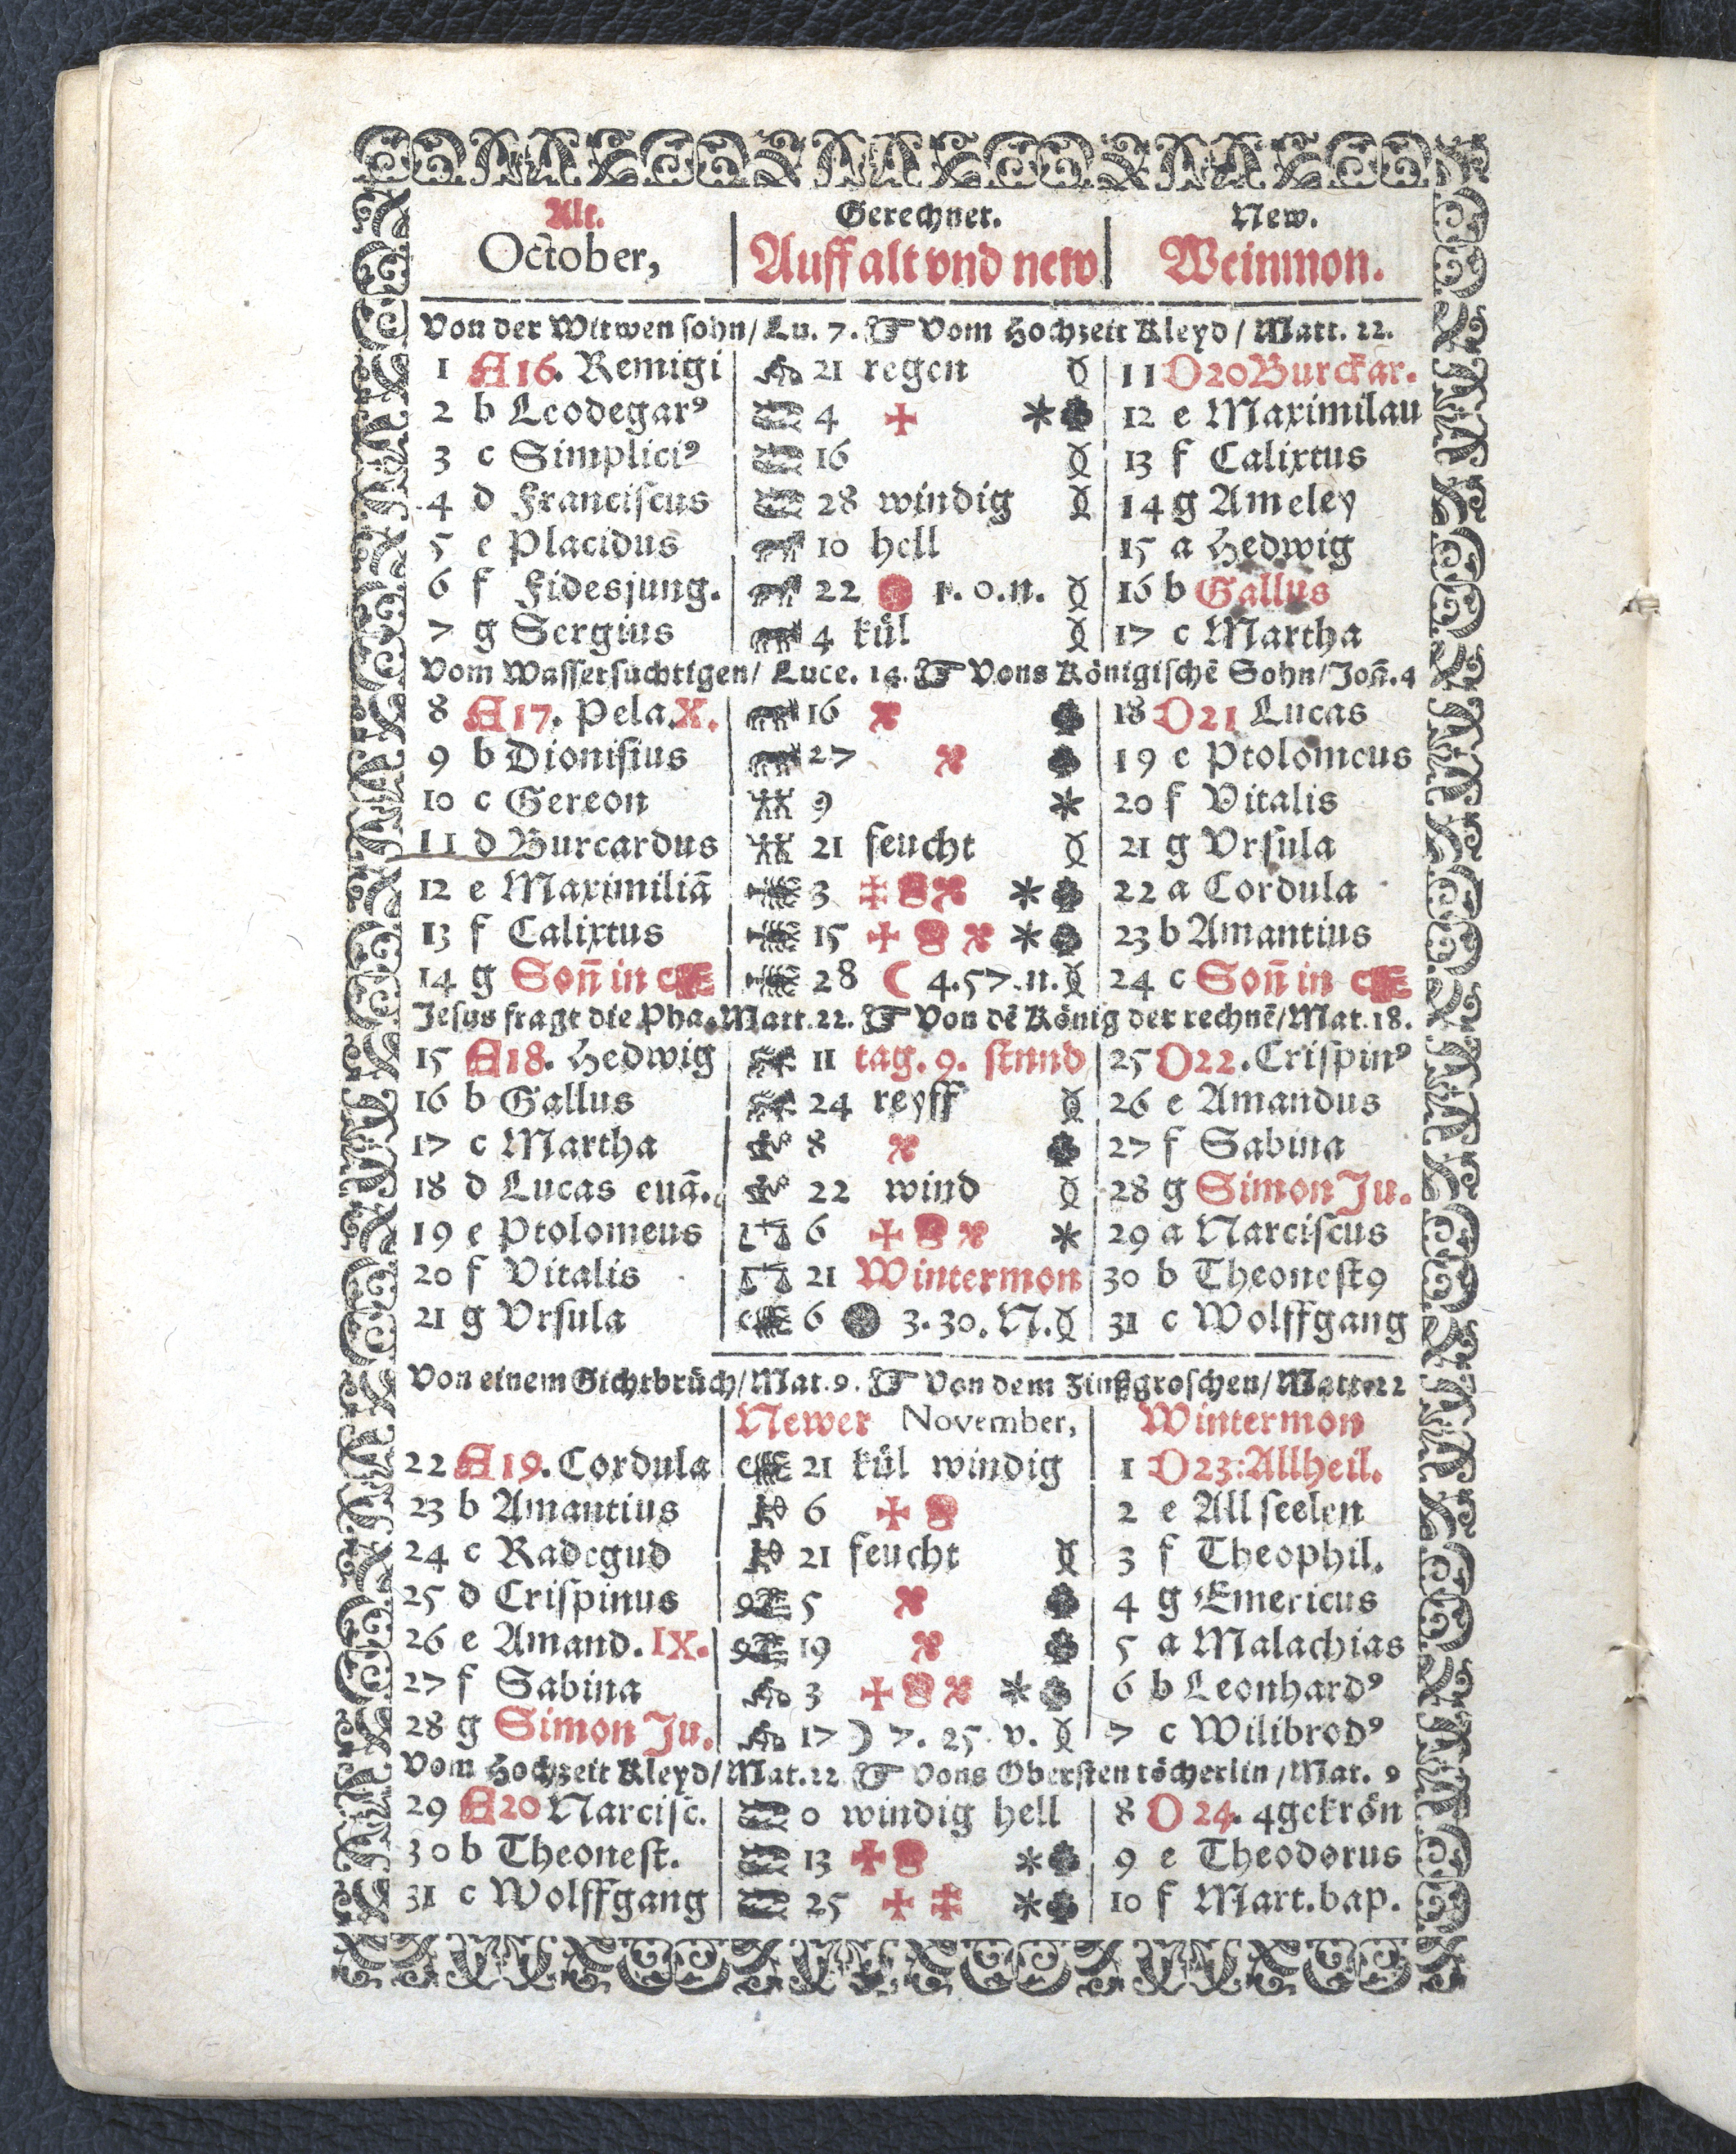 Alt. Gerechnet. New.
October, Auff alt vnd new Weinmon.
Von der Witwen sohn/ Lu. 7. ☞ Vom Hochzeit Kleyd / Matt. 22.
1 A 16. Remigi 21 regen 11 D 20 Burckar.
2 b Leodegarꝰ 4 12 e Maximilan
3 c Simpliciꝰ 16 13 f Calixtus
4 d Franciſcus 28 windig 14 g Ameley
5 e Placidus 10 hell 15 a Hedwig
6 f Fidesjung. 22 1. 0. n. 16 b Gallus
7 g Sergius 4 kůl 17 c Martha
Vom Waſſerſuchtigen/ Luce. 14. ☞ Vons Königiſchē Sohn/Joñ.4
8 A 17. Pela. X. 16 18 D 21 Lucas
9 b Dioniſius 27 19 e Ptolomeus
10 c Gereon 9 20 f Vitalis
11 d Burcardus 21 feucht 21 g Vrſula
12 e Maximiliā 3 22 a Cordula
13 f Calixtus 15 23 b Amantius
14 g Soñ in 28 ☾ 4.57.n. 24 c Soñ in
Jeſus fragt die Pha. Matt.22. ☞ Von dē König der rechnē/Mat.18.
15 A 18. Hedwig 11 tag. 9. ſtund 25 D 22. Criſpinꝰ
16 b Gallus 24 reyff 26 e Amandus
17 c Martha 8 27 f Sabina
18 d Lucas euā. 22 wind 28 g Simon Ju.
19 e Ptolomeus 6 29 a Narciſcus
20 f Vitalis 21 Wintermon 30 b Theoneſt9
21 g Vrſula 6 3. 30. N. 31 c Wolffgang
Von einem Gichtbrůch/Mat.9. ☞ Von dem Zinßgroſchen/Matt.22
Newer November, Wintermon
22 A 19. Cordula 21 kůl windig 1 D 23: Allheil.
23 b Amantius 6 2 e All ſeelen
24 c Radegud 21 feucht 3 f Theophil.
25 d Criſpinus 5 4 g Emericus
26 e Amand. IX. 19 5 a Malachias
27 f Sabina 3 6 b Leonhardꝰ
28 g Simon Ju. 17 ☽ 7. 25. v. 7 c Wilibrodꝰ
Vom Hochzeit Kleyd/Mat.22 ☞ Vons Oberſten töcherlin /Mat. 9
29 A 20 Narciſc. 0 windig hell 8 D 24. 4gekrön
30 b Theoneſt. 13 9 e Theodorus
31 c Wolffgang 25 10 f Mart.bap.